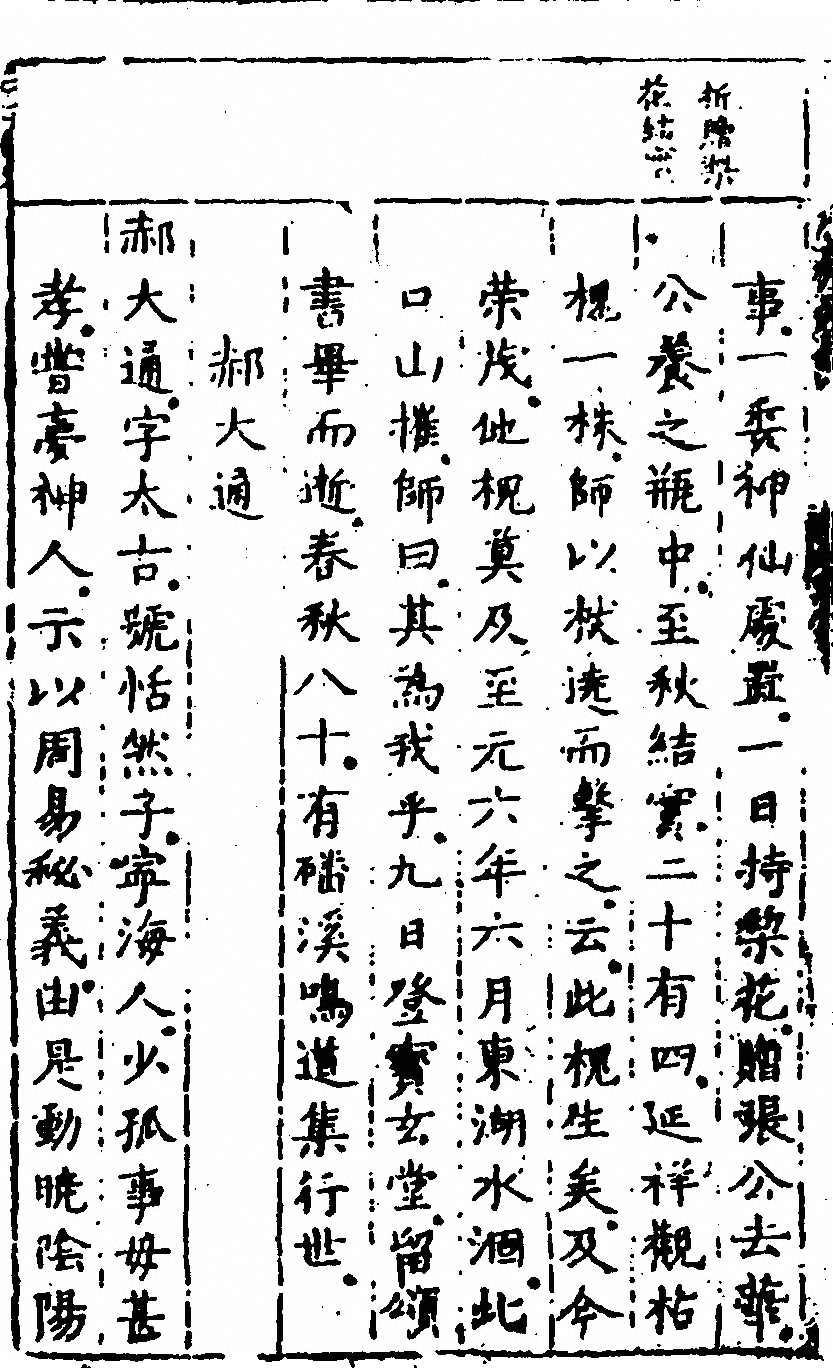 折贈梨
花結實
事一委神仙處置一日持梨花贈張公去華
公養之瓶中至秋結實二十有四延祥觀枯
槐一株師以杖遶而擊之云此槐生矣及今
荣茂他槐莫及至元六年六月東湖水涸北
口山摧師曰其為我乎九日登寶玄堂留頌
書畢而逝春秋八十有磻溪鳴道集行世
郝大通
郝大通字太古號恬然子寧海人少孤事母甚
孝嘗夢神人示以周易秘義由是動曉陰陽